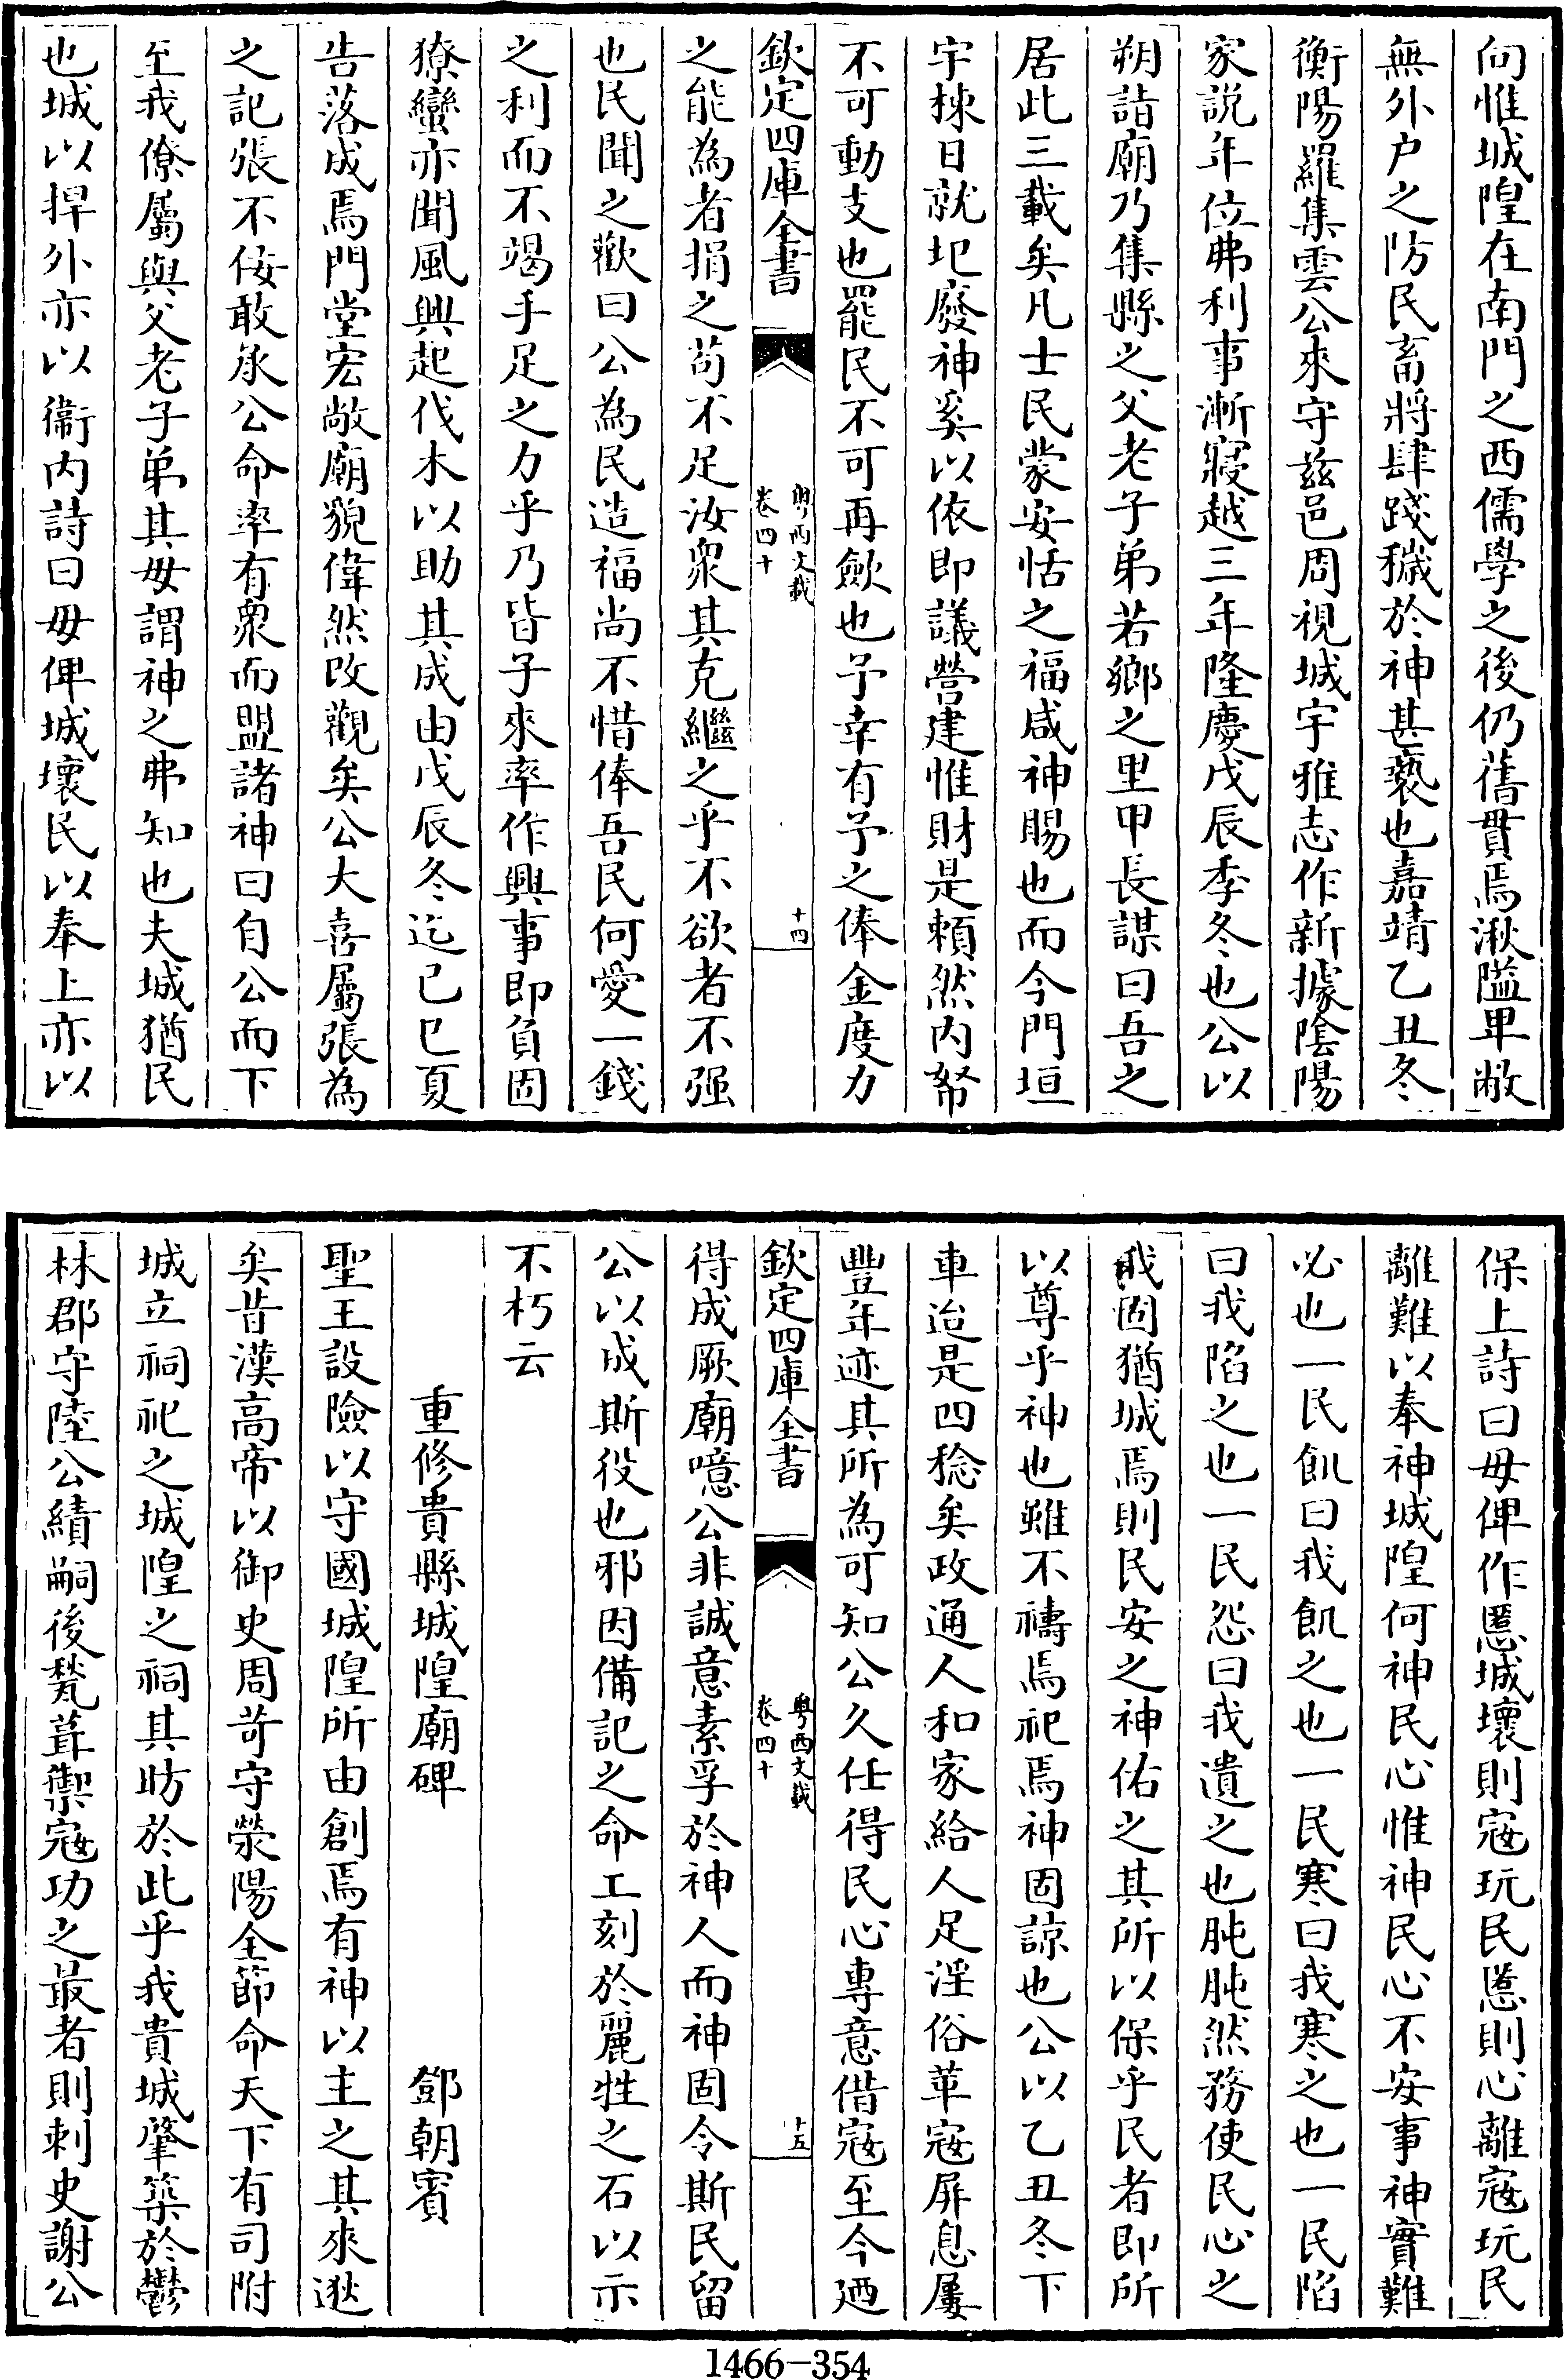 向惟城隍在南門之西儒學之後仍舊貫焉湫隘卑敝
無外户之防民畜將肆踐穢於神甚褻也嘉靖乙丑冬
衡陽羅集雲公來守兹邑周視城宇雅志作新據陰陽
家説年位弗利事漸寢越三年隆慶戊辰季冬也公以
朔詣廟乃集縣之父老子弟若鄉之里甲長謀曰吾之
居此三載矣凡士民蒙安恬之福咸神賜也而今門垣
宇棟日就圮廢神奚以依即議營建惟財是賴然内帑
不可動支也罷民不可再歛也予幸有予之俸金度力
欽定四庫全書
粤西文載
卷四十
十四
之能為者捐之苟不足汝衆其克繼之乎不欲者不强
也民聞之歡曰公為民造福尚不惜俸吾民何愛一錢
之利而不竭手足之力乎乃皆子來率作興事即負固
獠蠻亦聞風興起伐木以助其成由戊辰冬迄已巳夏
告落成焉門堂宏敞廟貌偉然改觀矣公大喜屬張為
之記張不佞敢承公命率有衆而盟諸神曰自公而下
至我僚屬與父老子弟其毋謂神之弗知也夫城猶民
也城以捍外亦以衞内詩曰毋俾城壞民以奉上亦以
保上詩曰毋俾作慝城壞則寇玩民慝則心離寇玩民
離難以奉神城隍何神民心惟神民心不安事神實難
必也一民飢曰我飢之也一民寒曰我寒之也一民陷
曰我陷之也一民怨曰我遺之也肫肫然務使民心之
我固猶城焉則民安之神佑之其所以保乎民者即所
以尊乎神也雖不禱焉祀焉神固諒也公以乙丑冬下
車迨是四稔矣政通人和家給人足淫俗革寇屏息屢
豐年迹其所為可知公久任得民心專意借寇至今廼
欽定四庫全書
粤西文載
卷四十
十五
得成厥廟噫公非誠意素孚於神人而神固令斯民留
公以成斯役也邪因備記之命工刻於麗牲之石以示
不朽云
重修貴縣城隍廟碑 鄧朝賓
聖王設險以守國城隍所由創焉有神以主之其來逖
矣昔漢高帝以御史周苛守滎陽全節命天下有司附
城立祠祀之城隍之祠其昉於此乎我貴城肇築於鬱
林郡守陸公績嗣後甃葺禦寇功之最者則刺史謝公
1466-354